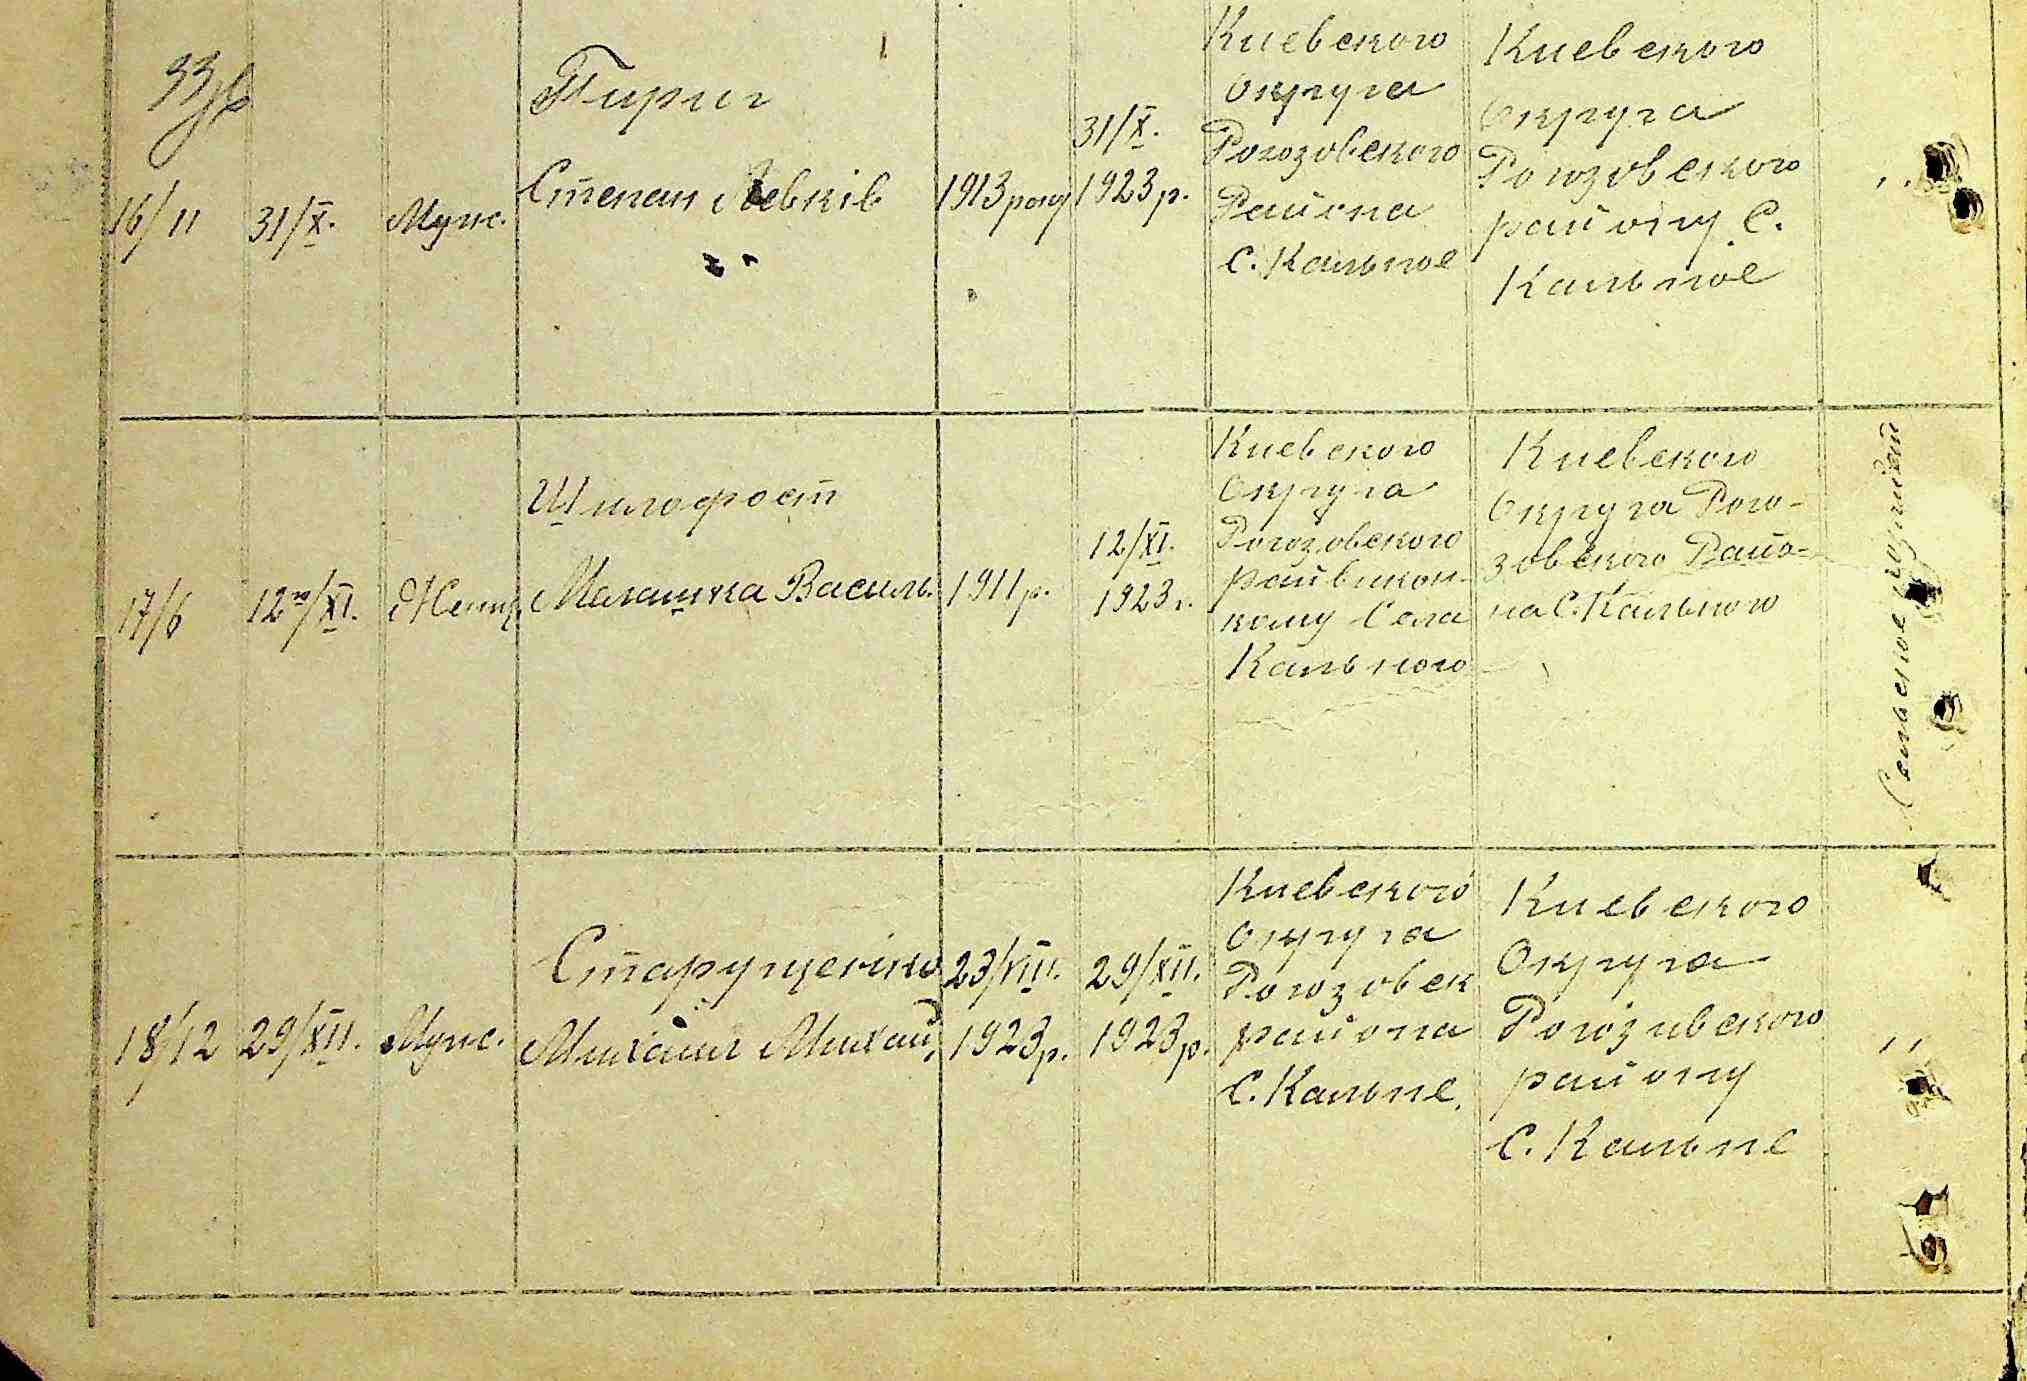 33
Пириг
16/11
31/X.
Муж.
Степан Левків
1913 року
31/X.
1923 р.
Киевского
Округа
Рогозовского
Района
С. Кальное
Киевского
Округа
Рогозовского
району С.
Кальное
„
17/6
12го/XI.
Женщ.
Шилофост
Малашка Василь.
1911 р.
12/XI.
1923 г.
Киевского
Округа
Рогозовского
райвикон-
кому Села
Кального
Киевского
Округа Рого-
зовского Райо-
на С. Кального
Сельское
18/12
29/XII.
Муж.
Старущенко
Михаил Михай.
23/VIII.
1923 р.
29/XII.
1923 р.
Киевского
Округа
Рогозовск
района
С. Кальне.
Киевского
Округа
Рогозивского
району
С. Кальне
„